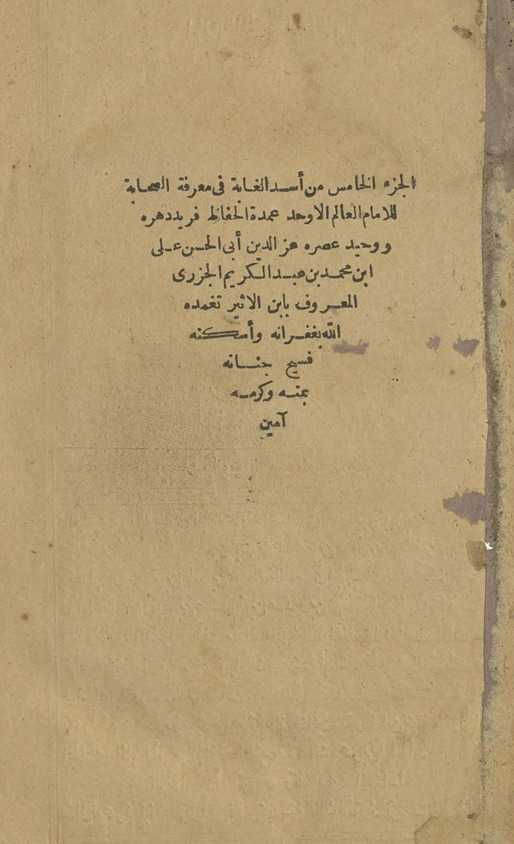 الجزء الخامس من أسد الغابة فى معرفة الصحابة
للامام العالم الاوحد عمدة الحفاظ فريد دهره
ووحيد عصره عز الدين أبى الحسن على
ابن محمد بن عبد الكريم الجزرى
المعروف بابن الاثير تغمده
الله بغفرانه وأسكنه
فسيح جنانه
بمنه وكرمه
آمين